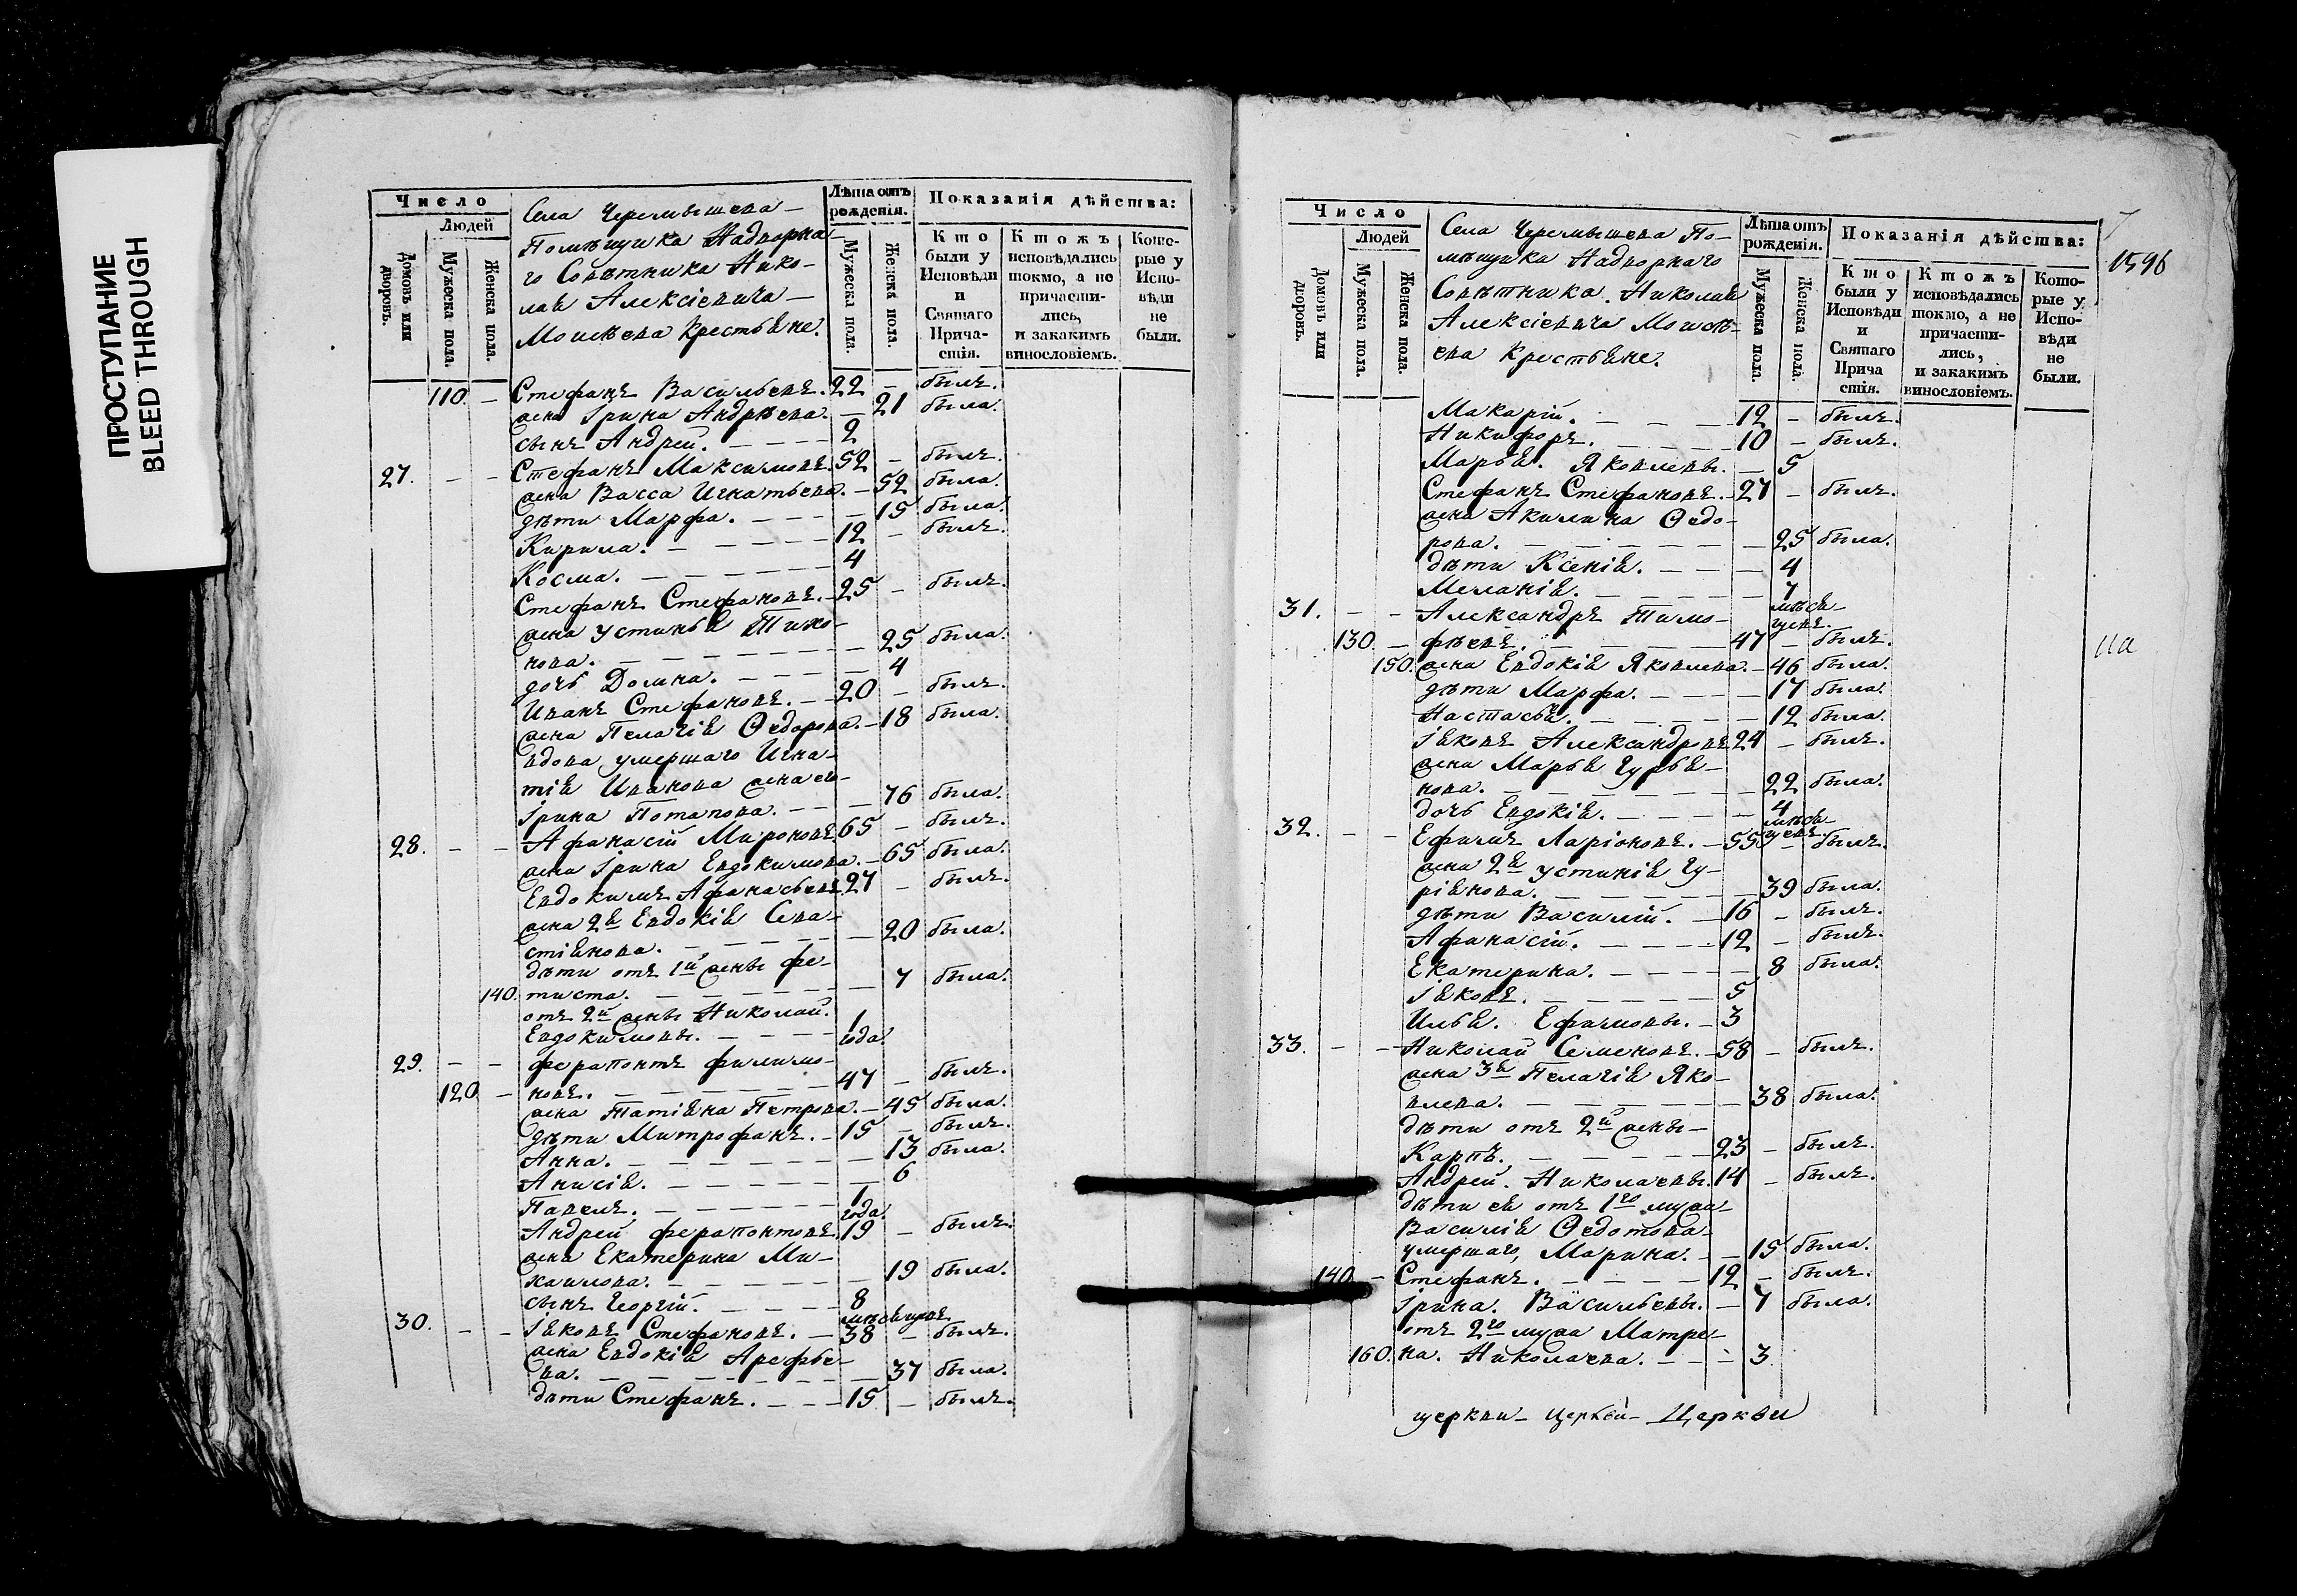 ПРОСТУПАНИЕ
BLEED THROUGH
Число
Людей
Домовъ или дворовъ.
Мужеска пола.
Женска пола.
Села Черемышева
Помѣщика Надворна-
го Совѣтника Нико-
лая Алексіевича
Моисѣева Крестьяне.
Лѣта отъ рожденія.
Мужеска пола.
Женска пола.
Показанія дѣйства:
Кто были у Исповѣди и Святаго Прича-стія.
Ктожъ исповѣдались токмо, а не причасти-лись, и закакимъ винословіемъ.
Кото-рые у Испо-вѣди не были.
110. – Стефанъ Васильевъ. 22 – былъ.
жена Ірина Андрѣева. – 21 была.
сынъ Андрей. – 2
27. – – Стефанъ Максимовъ. 52 – былъ.
жена Васса Игнатьева. – 52 была.
дѣти Марфа. – 15 была.
Кирила. – 12 – былъ.
Косма. – 4
Стефанъ Стефановъ. – 25 – былъ.
жена Устинья Тихо-
нова. – 25 была.
дочь Домна. – 4
Иванъ Стефановъ. – 20 – былъ.
жена Пелагія Ѳедорова. – 18 была.
вдова умершаго Игна-
тія Иванова жена его
Ірина Потапова. – 76 была.
28. – – Афанасій Мироновъ. 65 – былъ.
жена Ірина Евдокимова. – 65 была.
Евдокимъ Афанасьевъ 27 – былъ.
жена 2я Евдокія Сева-
стіянова. – 20 была.
дѣти отъ 1й жены Фе-
140. тиста. – 7 была.
отъ 2й жены Николай.
Евдокимовы. – 1 года.
29. – – Ферапонтъ Филимо-
120 – новъ. – 47 – былъ.
жена Татіяна Петрова. – 45 была.
дѣти Митрофанъ. – 15 – былъ.
Анна. – 13 была.
Анисія. – 6
Павелъ. – 1 года.
Андрей Ферапонтовъ. 19 – былъ.
жена Екатерина Ми-
хаилова. – 19 была.
сынъ Георгій. – 8 мѣсяцевъ
30. – – Іяковъ Стефановъ. – 38 – былъ.
жена Евдокія Арефье-
ва. – 37 была.
дѣти Стефанъ. – 15 – былъ.
Число
Людей
Домовъ или дворовъ.
Мужеска пола.
Женска пола.
Села Черемышева По-
мѣщика Надворнаго
Совѣтника Николая
Алексіевича Моисѣ-
ева Крестьяне.
Лѣта отъ рожденія.
Мужеска пола.
Женска пола.
Показанія дѣйства:
Кто были у Исповѣди и Святаго Прича стія.
Ктожъ исповѣдались токмо, а не причасти-лись, и закакимъ винословіемъ.
Кото-рые у Испо-вѣди не были.
1596
Макарій. – 12 – былъ.
Никифоръ. – 10 – былъ.
Марья. Яковлевы. – 5
Стефанъ Стефановъ. – 27 – былъ.
жена Акилина Ѳедо-
рова. – 25 была.
дѣти Ксенія. – 4
Меланія. – 7 мѣся-
цевъ.
31. – – Александръ Тимо-
130. – фѣевъ. – 47 – былъ.
150. жена Евдокія Яковлева. – 46 была.
дѣти Марфа. – 17 была.
Настасья. – 12 была.
Іяковъ Александровъ 24 – былъ.
жена Марья Гурья-
нова. – 22 была.
дочь Евдокія. – 4 мѣся-
цевъ.
32. – – Ефимъ Ларіоновъ. – 55 – былъ.
жена 2я Устинія Гу-
ріянова. – 39 была.
дѣти Василій. – 16 – былъ.
Афанасій. – 12 – былъ.
Екатерина. – 8 была.
Іяковъ. – 5
Илья. Ефимовы. – 3
33. – – Николай Семеновъ. – 58 – былъ.
жена 3я Пелагія Яко-
влева. – 38 была.
дѣти отъ 2й жены
Карпъ. – 23 – былъ.
Андрей. Николаевы. 14 – былъ.
дѣти ея отъ 1го мужа
Василія Ѳедотова
умершаго, Марина. – 15 была.
140 – Стефанъ. – 12 – былъ.
Ірина. Васильевы. – 7 была.
отъ 2го мужа Матре-
160. на. Николаева. – 3.
11а
церкви – Церкви – Церкви